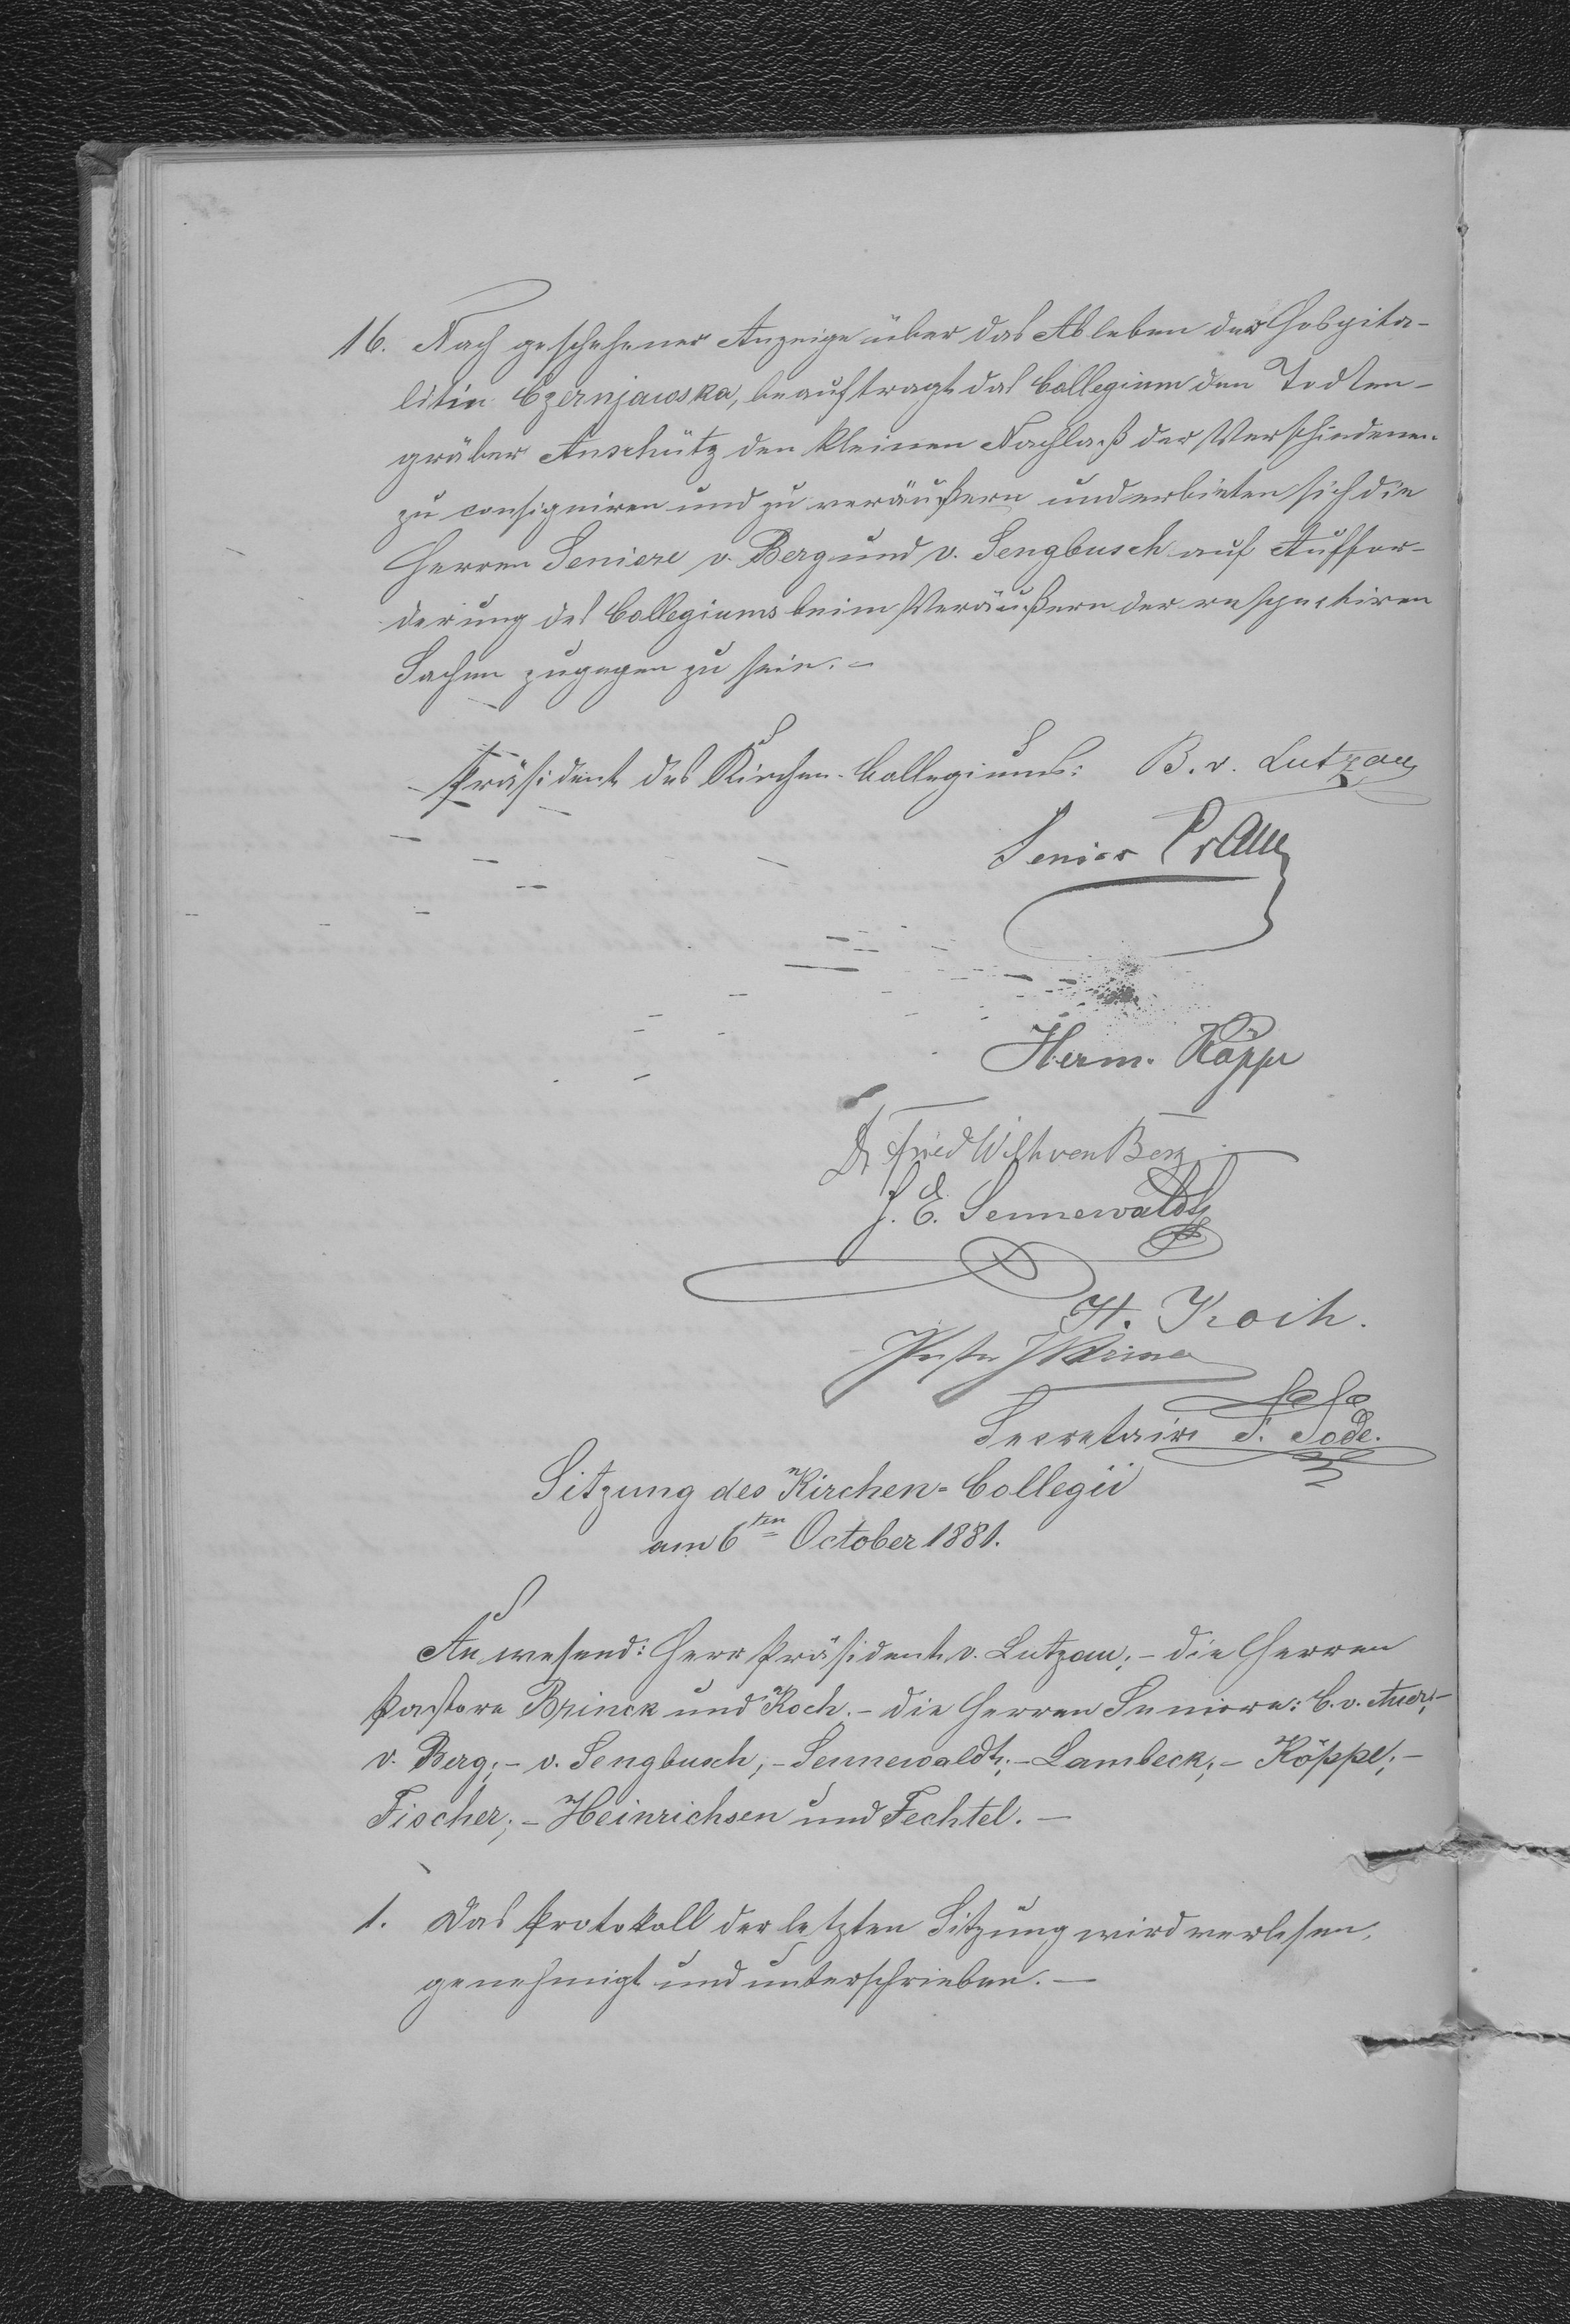 16. Nach geschehener Anzeige über das Ableben der Hospita-
litin Czernjawska, beauftragt das Collegium den Todten-
gräber Anschütz den kleinen Nachlaß der Verschiedenen
zu consigniren und zu veräußern und erbieten sich die
Herren Seniore v. Berg und v. Sengbusch auf Auffor-
derung des Collegiums beim Veräußern der respectiven
Sachen zugegen zu sein. –
Präsident des Kirchen-Collegiums: B. v. Lutzau
Senior
Herm. Köppe
Dr Fried Wilh von Berg
J. E. Sennewaldt
H. Koch.
Pastor
Secretaire T. Tode.
Sitzung des Kirchen-Collegii
am 6ten October 1881.
Anwesend: Herr Präsident v. Lutzau; – die Herren
Pastore Brinck und Koch. – die Herren Seniore: C. v. Auer; –
v. Berg; – v. Sengbusch; – Sennewaldt; – Lambeck; – Köppe; –
Fischer; – Heinrichsen und Fechtel. –
1. Das Protokoll der letzten Sitzung wird verlesen,
genehmigt und unterschrieben. –